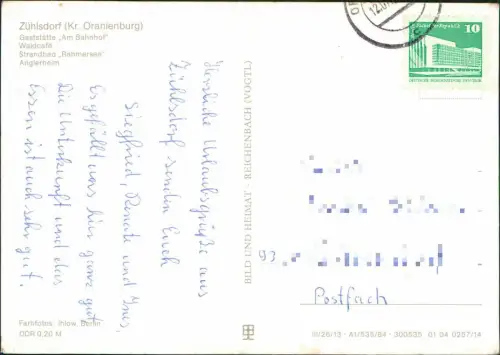 Zühlsdorf (Kr. Oranienburg)
Gaststätte „Am Bahnhof"
Waldcafé
Strandbad „Rahmersee"
Anglerheim
Herzliche Urlaubsgrüße aus
Zühlsdorf senden Euch
Siegfried, Renate und Ines.
Es gefällt uns hier ganz gut.
Die Unterkunft und das
Essen ist auch sehr gut.
BILD UND HEIMAT · REICHENBACH (VOGTL)
10
93
Postfach
Farbfotos: Ihlow, Berlin
DDR 0,20 M
III/26/13 · A1/535/84 · 300535 01 04 0257/14